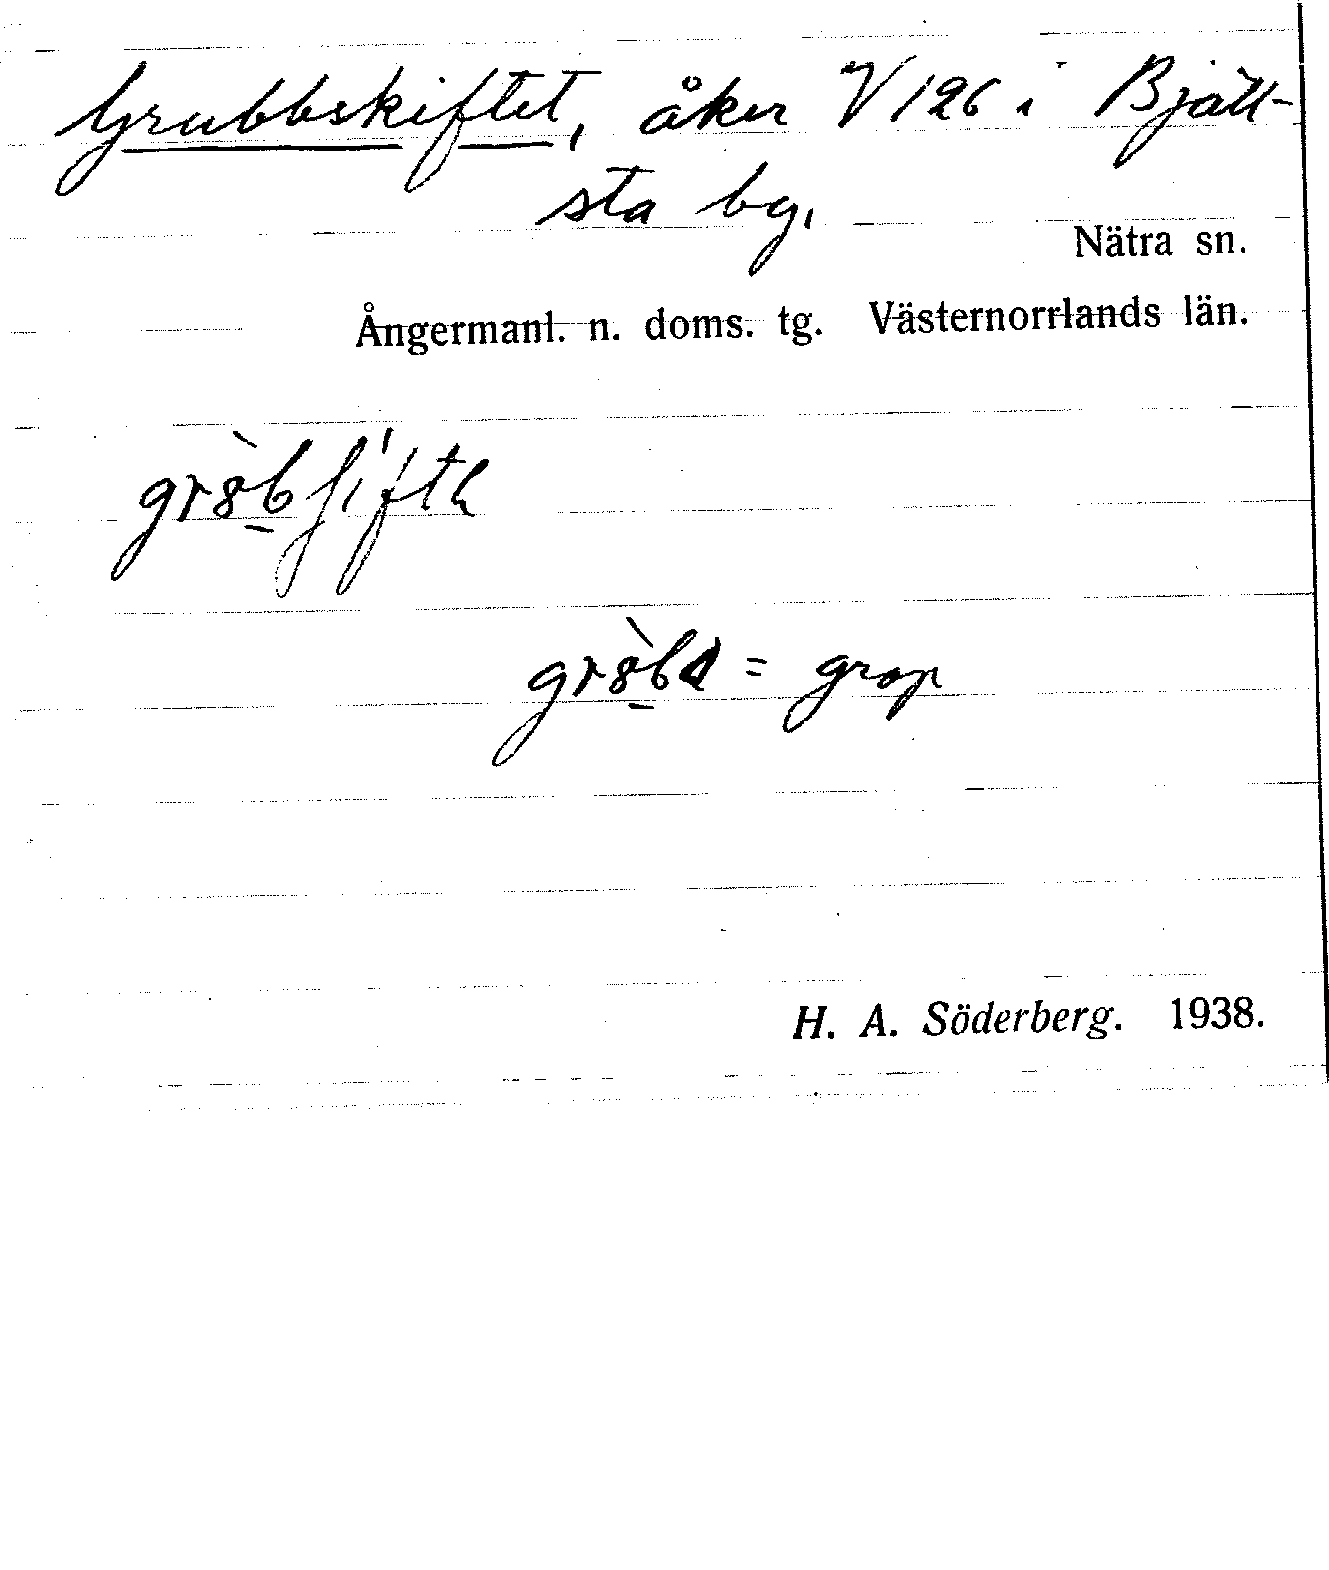 Grubbskiftet, åker V 126 i Bjätt-
sta bg.
Nätra sn.
Ångermanl. n. doms. tg. Västernorrlands län.
= grop
H. A. Söderberg. 1938.